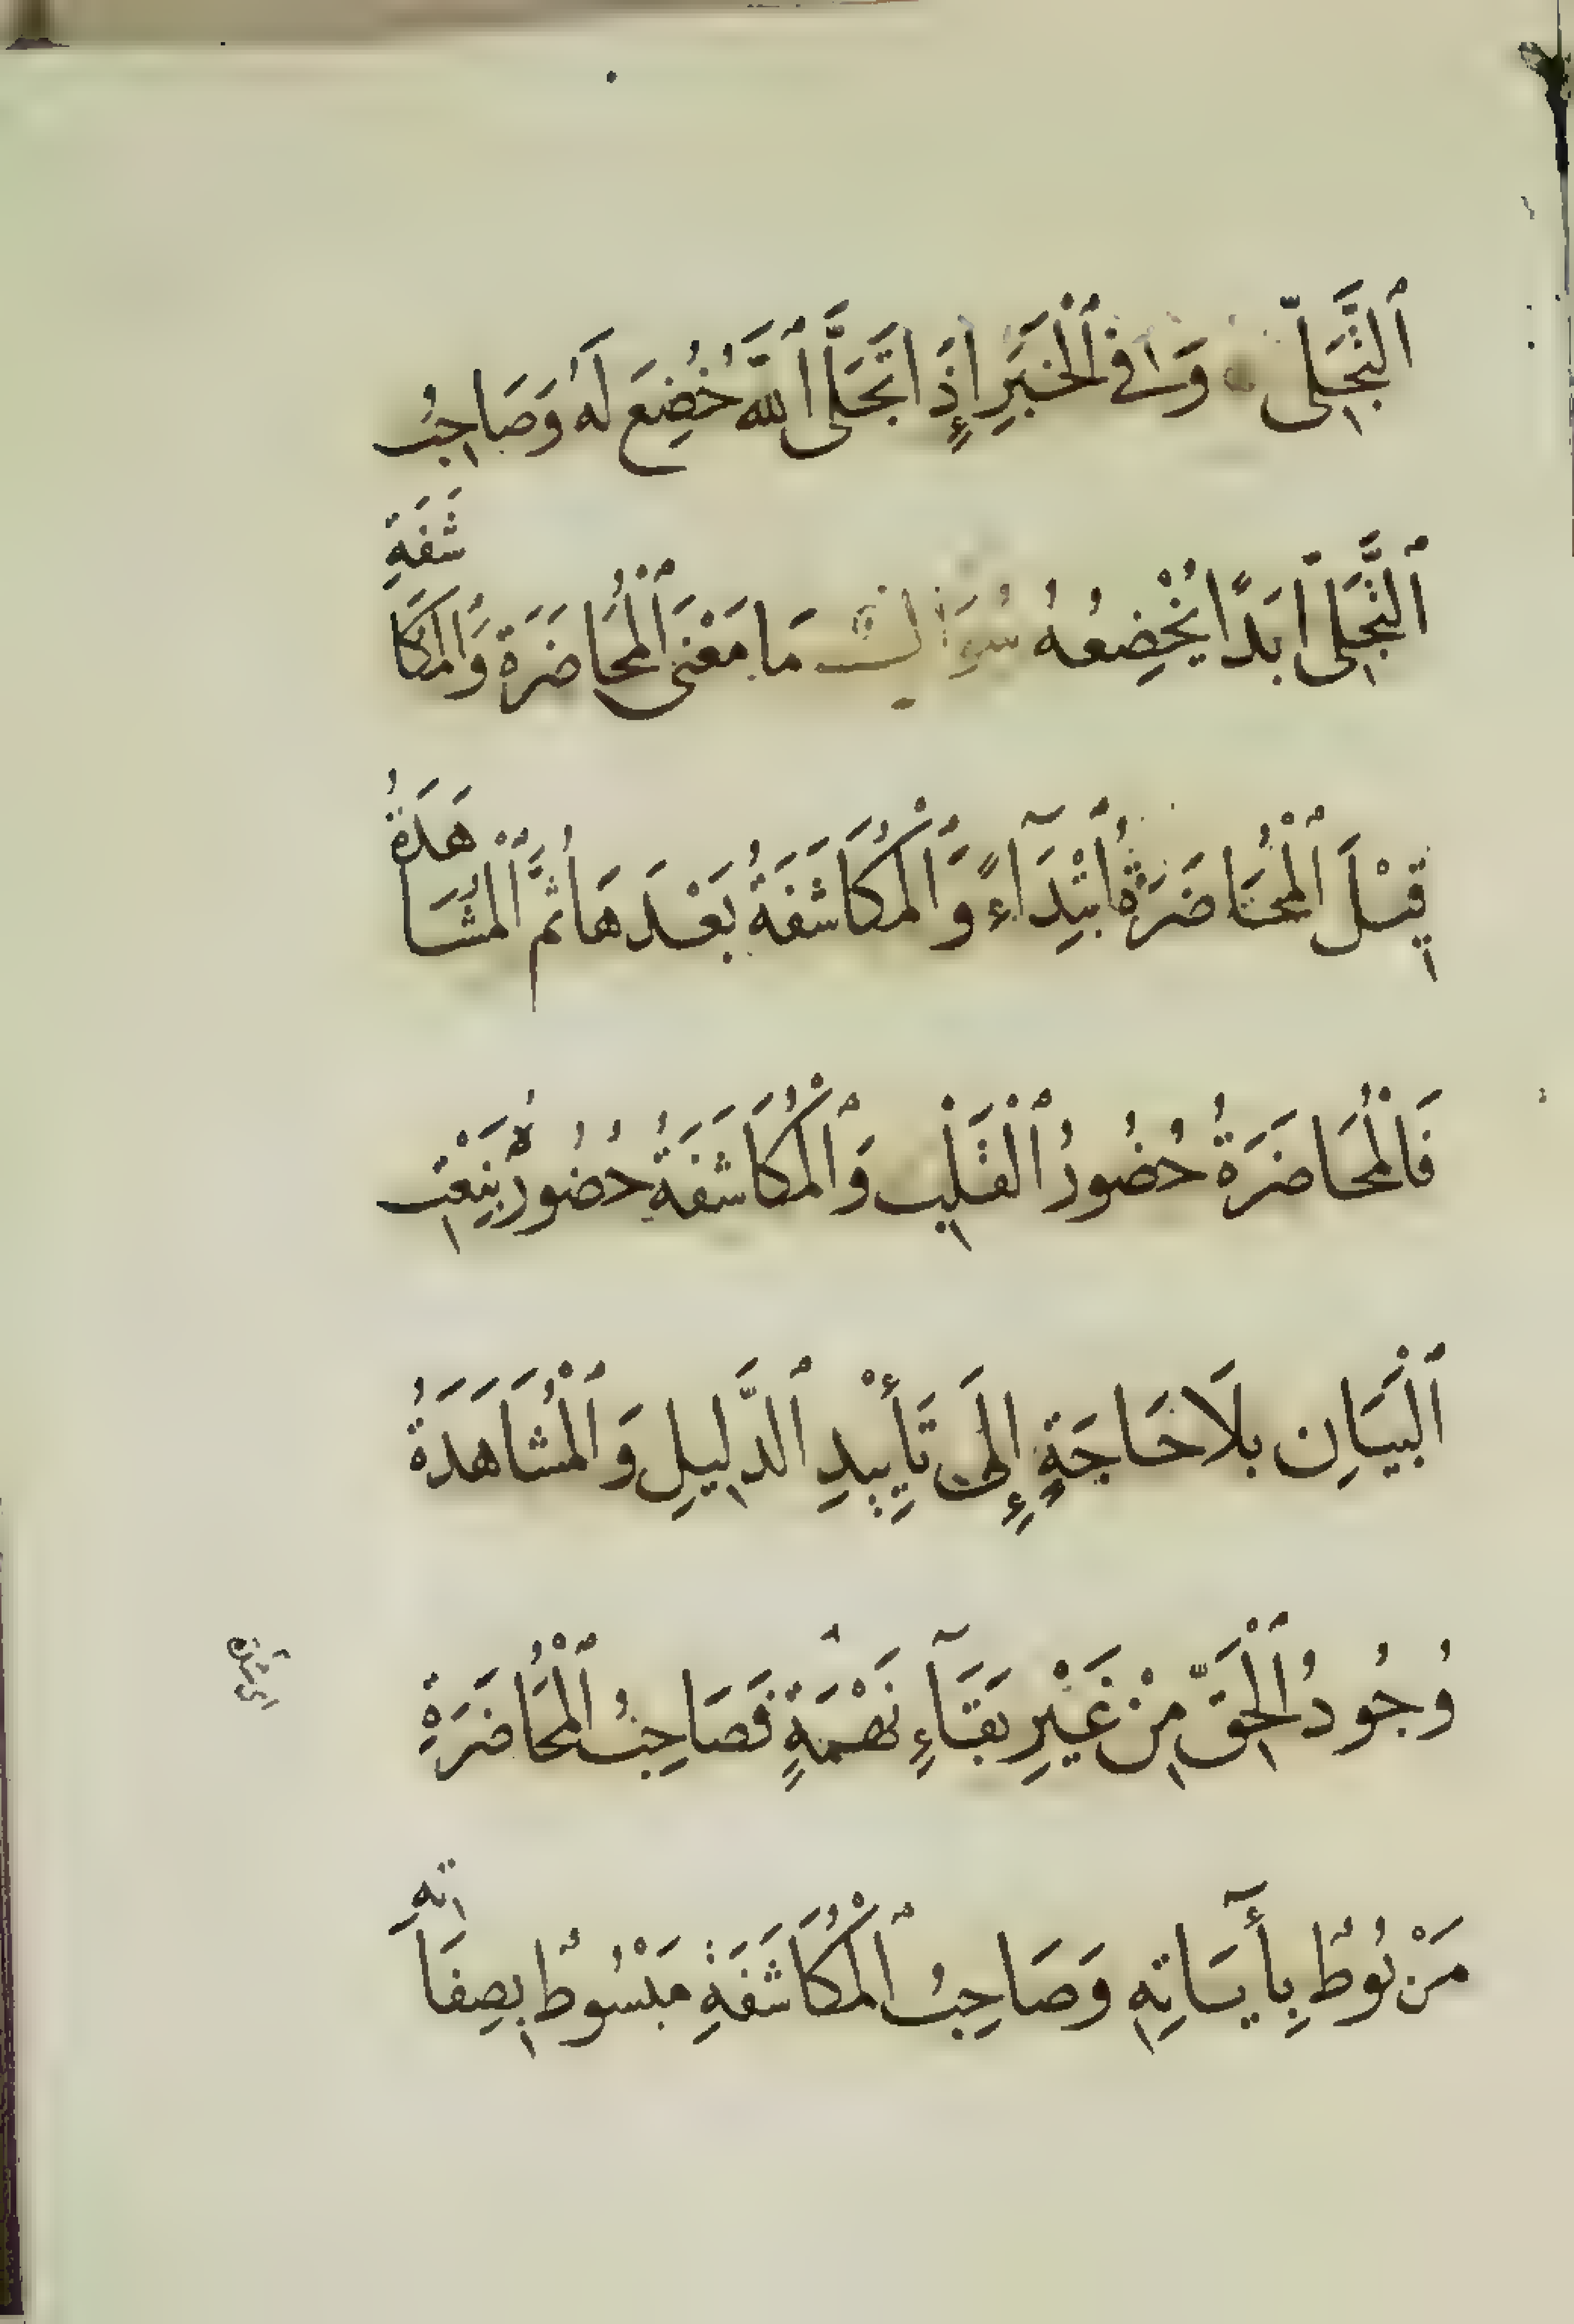 ٱلتَّجَلِّي وَفِي ٱلْخَبَرِ إِذَا تَجَلَّى ٱللَّهُ خُضِعَ لَهُ وَصَاحِبُ
ٱلتَّجَلِّي أَبَدًا يُخْضِعُهُ سُوَالٌ مَا مَعْنَى ٱلْمُحَاضَرَةِ وَٱلْمُكَاشَفَةِ
قِيلَ ٱلْمُحَاضَرَةُ ٱبْتِدَآءً وَٱلْمُكَاشَفَةُ بَعْدَهَا ثُمَّ ٱلْمُشَاهَدَةُ
فَالْمُحَاضَرَةُ حُضُورُ ٱلْقَلْبِ وَٱلْمُكَاشَفَةُ حُضُورُهُ بِنَعْتِ
ٱلْبَيَانِ بِلَا حَاجَةٍ إِلَى تَأْيِيدِ ٱلدَّلِيلِ وَٱلْمُشَاهَدَةُ
وُجُودُ ٱلْحَقِّ مِنْ غَيْرِ بَقَآءِ نَهْمَةٍ فَصَاحِبُ ٱلْمُحَاضَرَةِ
مَرْبُوطٌ بِأٓيَاتِهِ وَصَاحِبُ ٱلْمُكَاشَفَةِ مَبْسُوطٌ بِصِفَاتِهِ